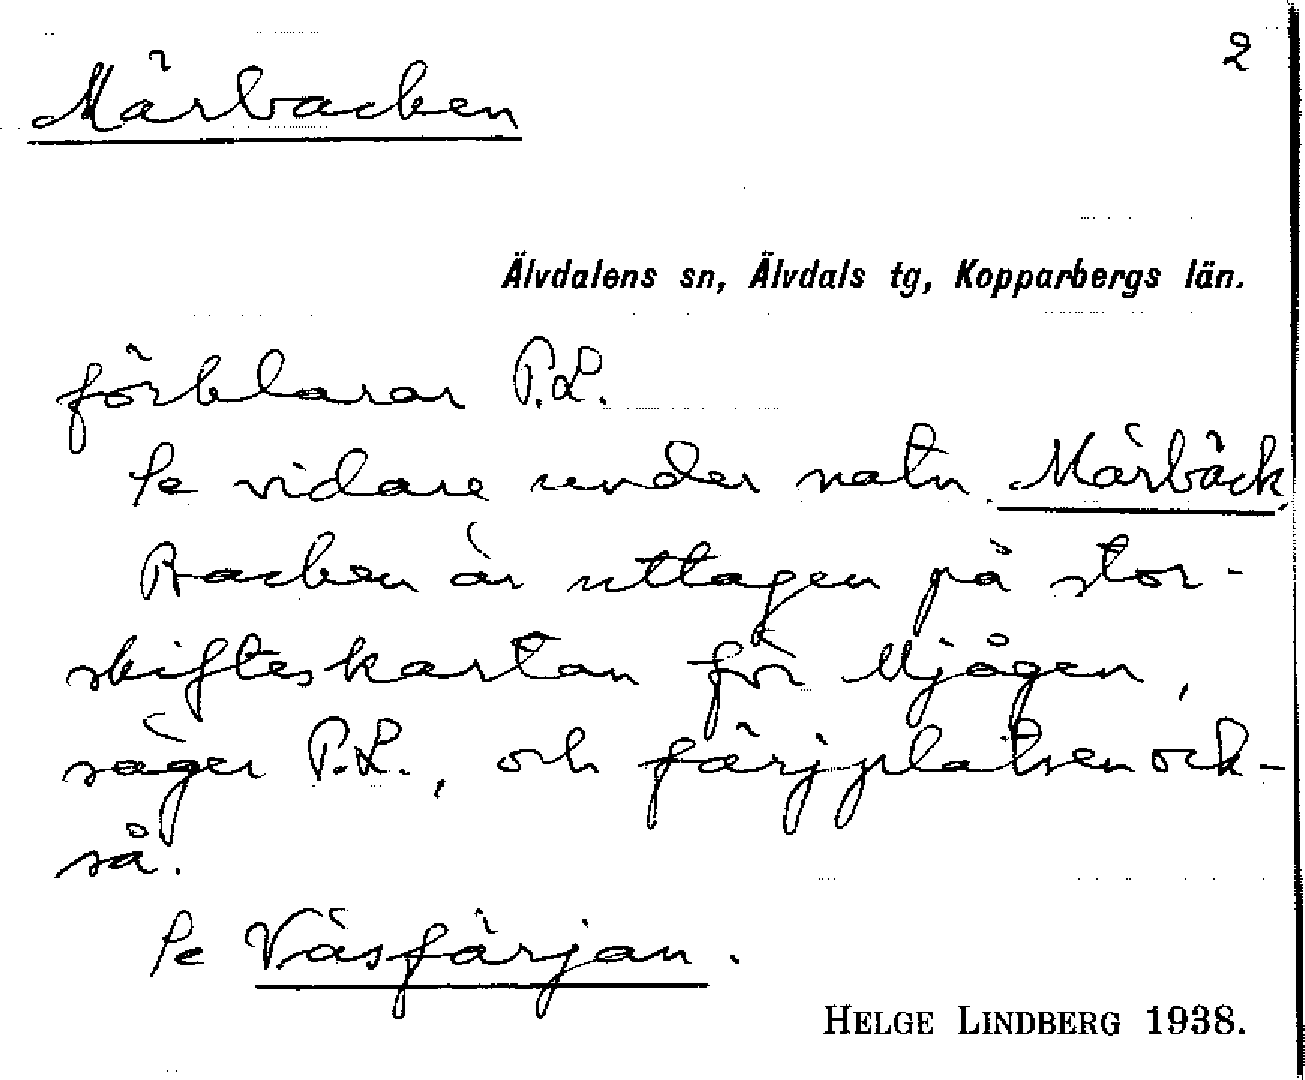 2
Märbacken
Älvdalens sn, Älvdals tg, Kopparbergs län.
förklarar P.L.
Se vidare under natn. Märbäck.
Backen är uttagen på stor-
skifteskartan för Mjågen,
säger P.L., och färjplatsen ock-
så.
Se Väsfärjan.
HELGE LINDBERG 1938.